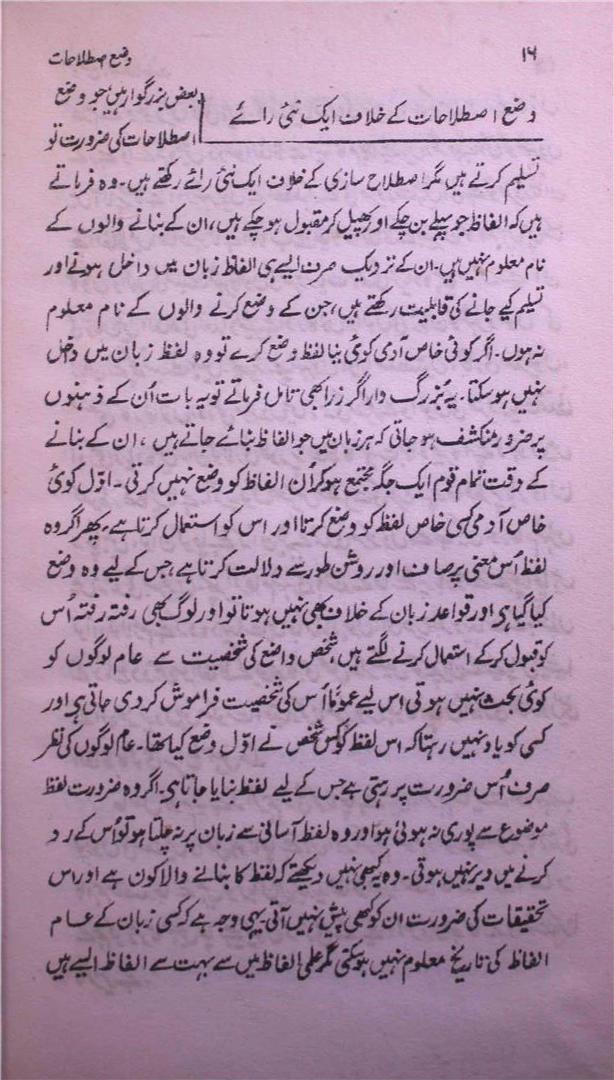 ۱۶ وضع اصطلاحات
وضع اصطلاحات کے خلاف ایک نئی رائے
بعض بزرگوار ہیں جو وضع
اصطلاحات کی ضرورت تو
تسلیم کرتے ہیں مگر اصطلاح سازی کے خلاف ایک نئی رائے رکھتے ہیں۔ وہ فرماتے
ہیں کہ الفاظ جو پہلے بن چکے اور پھیل کر مقبول ہو چکے ہیں، ان کے بنانے والوں کے
نام معلوم نہیں ہیں۔ ان کے نزدیک صرف ایسے ہی الفاظ زبان میں داخل ہونے اور
تسلیم کیے جانے کی قابلیت رکھتے ہیں، جن کے وضع کرنے والوں کے نام معلوم
نہ ہوں۔ اگر کوئی خاص آدمی کوئی نیا لفظ وضع کرے تو وہ لفظ زبان میں دخل
نہیں ہو سکتا۔ یہ بزرگ وار اگر ذرا بھی تامل فرماتے تو یہ بات اُن کے ذہنوں
پر ضرور منکشف ہو جاتی کہ ہر زبان میں جو الفاظ بنائے جاتے ہیں، ان کے بنانے
کے وقت تمام قوم ایک جگہ مجتمع ہو کر اُن الفاظ کو وضع نہیں کرتی۔ اوّل کوئی
خاص آدمی کسی خاص لفظ کو وضع کرتا اور اس کو استعمال کرتا ہے۔ پھر اگر وہ
لفظ اُس معنی پر صاف اور روشن طور سے دلالت کرتا ہے جس کے لیے وہ وضع
کیا گیا ہی اور قواعد زبان کے خلاف بھی نہیں ہوتا تو اور لوگ بھی رفتہ رفتہ اُس
کو قبول کرکے استعمال کرنے لگتے ہیں، شخص واضع کی شخصیت سے عام لوگوں کو
کوئی بحث نہیں ہوتی اس لیے عموماً اُس کی شخصیت فراموش کر دی جاتی ہی اور
کسی کو یاد نہیں رہتا کہ اس لفظ کو کس شخص نے اوّل وضع کیا تھا۔ عام لوگوں کی نظر
صرف اُس ضرورت پر رہتی ہے جس کے لیے لفظ بنایا جاتا ہی۔ اگر وہ ضرورت لفظ
موضوع سے پوری نہ ہوئی ہو اور وہ لفظ آسانی سے زبان پر نہ چلتا ہو تو اُس کے رد
کرنے میں دیر نہیں ہوتی۔ وہ یہ کبھی نہیں دیکھتے کہ لفظ کا بنانے والا کون ہے اور اس
تحقیقات کی ضرورت ان کو کبھی پیش نہیں آتی یہی وجہ ہے کہ کسی زبان کے عام
الفاظ کی تاریخ معلوم نہیں ہو سکتی مگر علمی الفاظ میں سے بہت سے الفاظ ایسے ہیں